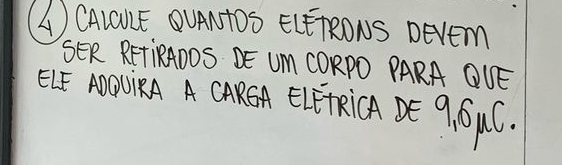 4) CALCULE QUANTOS ELÉTRONS DEVEM
SER RETIRADOS DE UM CORPO PARA QUE
ELE ADQUIRA A CARGA ELÉTRICA DE 9,6 μC.